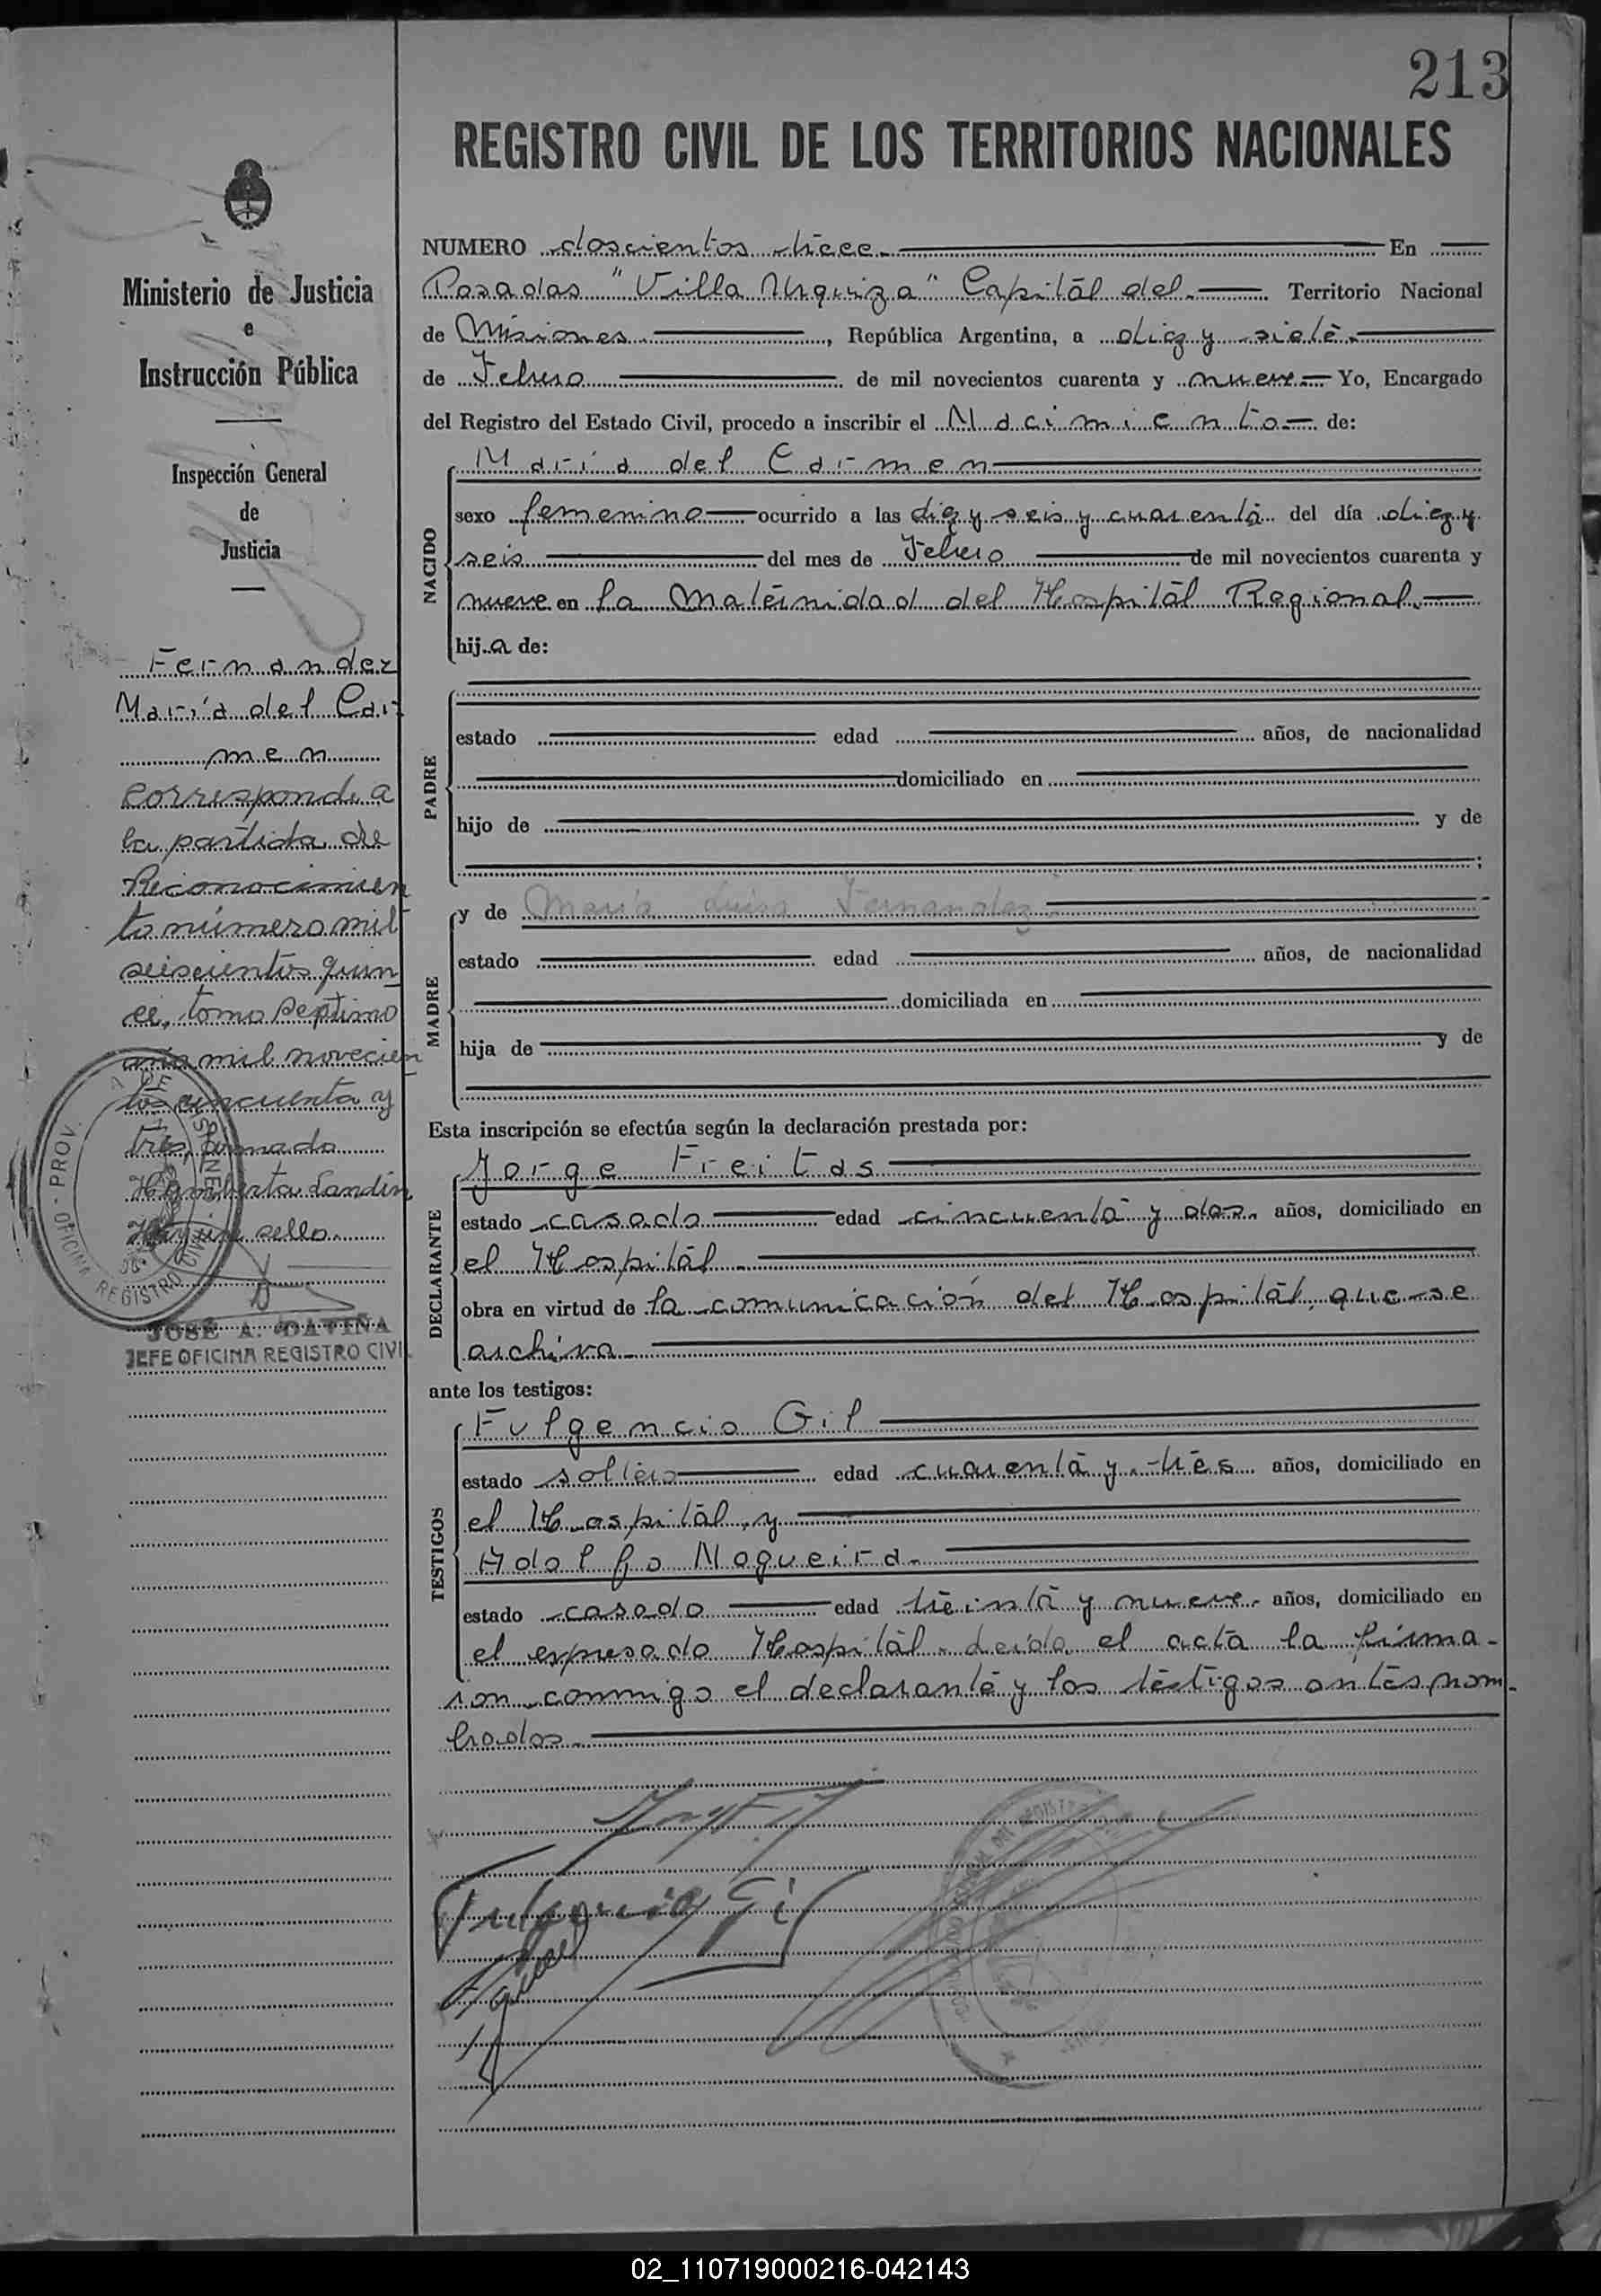 213
REGISTRO CIVIL DE LOS TERRITORIOS NACIONALES
Ministerio de Justicia
e
Instrucción Pública
Inspección General
de
Justicia
Fernandez
María del Car
men
corresponde a
la partida de
Reconocimien
to número mil
seiscientos quin
ce, tomo septimo
año mil novecien
tos cincuenta y
tres, firmado
Landin
sello
JOSÉ A. DATIÑA
JEFE OFICINA REGISTRO CIVIL
PROV. DE MISIONES
OFICINA REGISTRO CIVIL
NUMERO doscientos trece. En
Posadas "Villa Urquiza" Capital del. Territorio Nacional
de Misiones., República Argentina, a diez y siete.
de Febrero de mil novecientos cuarenta y nueve. Yo, Encargado
del Registro del Estado Civil, procedo a inscribir el Nacimiento de:
NACIDO
María del Carmen
sexo femenino ocurrido a las diez y seis y cuarenta del día diez y
seis del mes de Febrero de mil novecientos cuarenta y
nueve en la Maternidad del Hospital Regional.
hija de:
PADRE
estado edad años, de nacionalidad
domiciliado en
hijo de y de
;
MADRE
y de María Luisa Fernandez
estado edad años, de nacionalidad
domiciliada en
hija de y de
Esta inscripción se efectúa según la declaración prestada por:
DECLARANTE
Jorge Freitas
estado casado edad cincuenta y dos. años, domiciliado en
el Hospital.
obra en virtud de la comunicación del Hospital, que se
archiva.
ante los testigos:
TESTIGOS
Fulgencio Gil
estado soltero edad cuarenta y tres años, domiciliado en
el Hospital, y
Adolfo Nogueira.
estado casado edad treinta y nueve. años, domiciliado en
el expresado Hospital. Leída el acta la firma-
ron conmigo el declarante y los testigos antes nom-
brados.
Fulgencio Gil
02_110719000216-042143